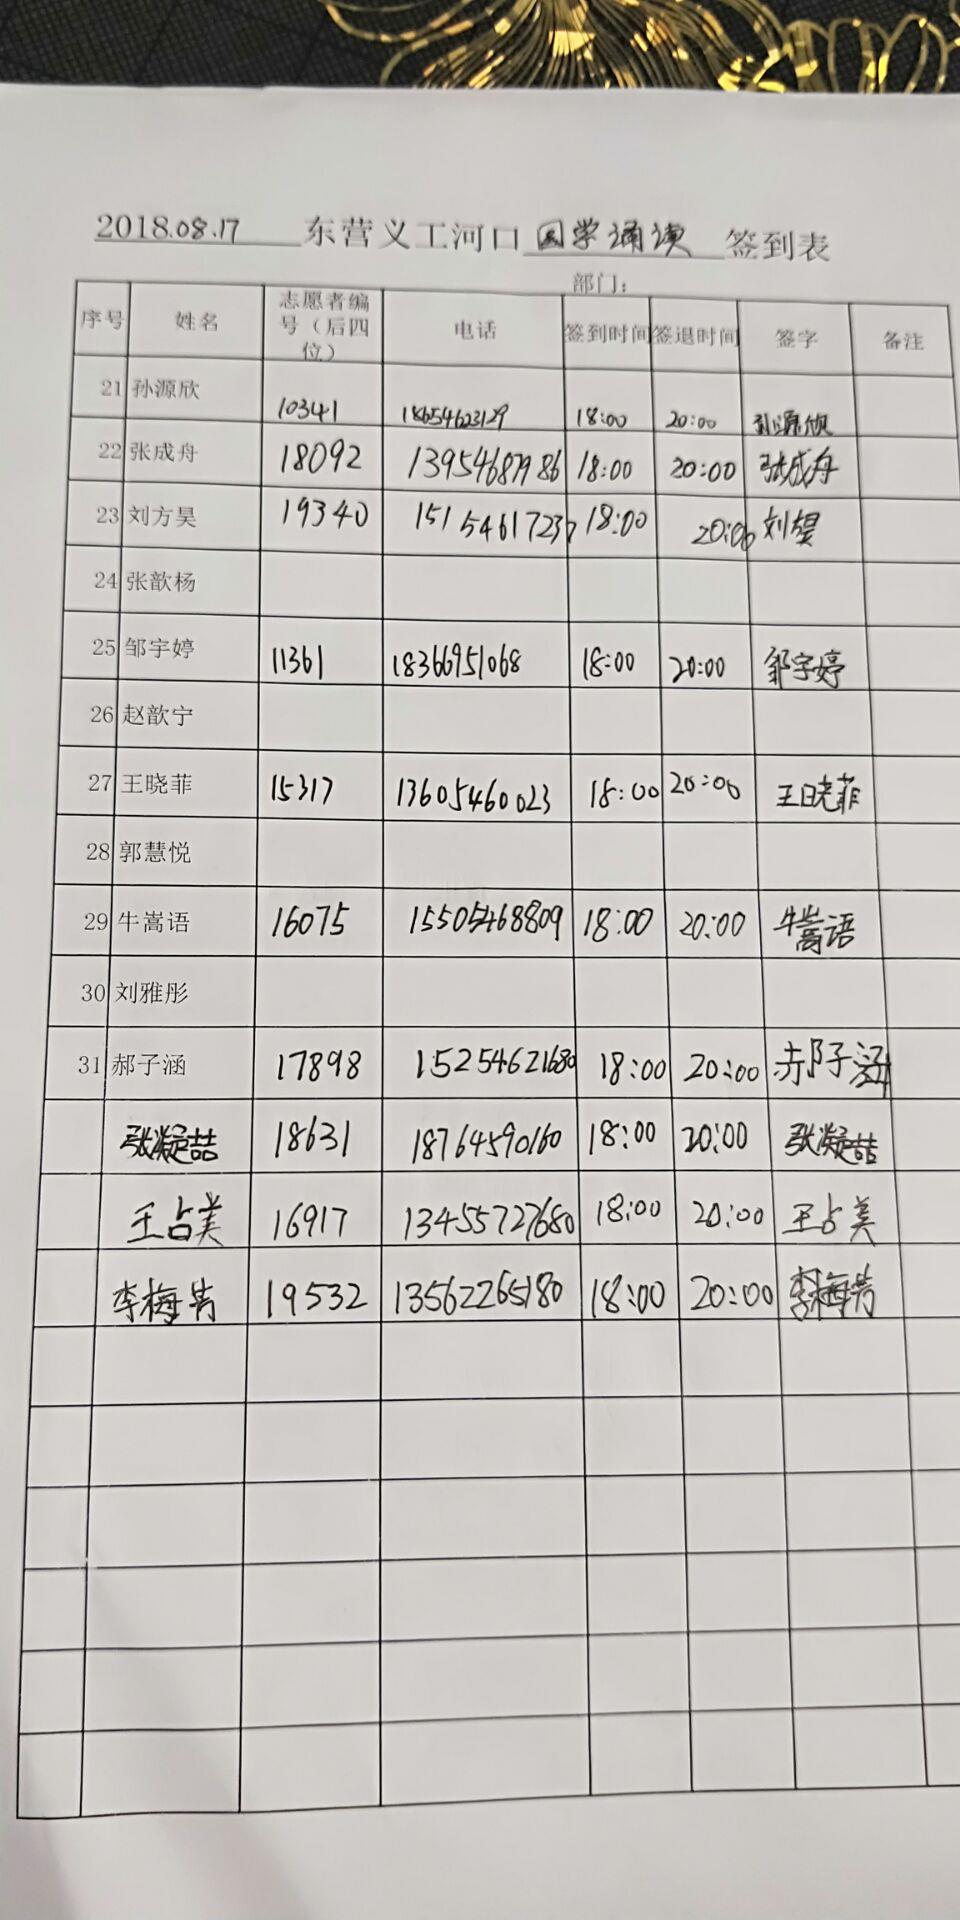 2018.08.17 东营义工河口国学诵读 签到表
部门：
序号 姓名 志愿者编号（后四位） 电话 签到时间 签退时间 签字 备注
21 孙源欣 10341 18654623129 18:00 20:00 孙源欣
22 张成舟 18092 13954687986 18:00 20:00 张成舟
23 刘方昊 19340 15154617237 18:00 20:00
24 张歆杨
25 邹宇婷 11361 18366951068 18:00 20:00 邹宇婷
26 赵歆宁
27 王晓菲 15317 13605460023 18:00 20:00 王晓菲
28 郭慧悦
29 牛嵩语 16075 15505468809 18:00 20:00 牛嵩语
30 刘雅彤
31 郝子涵 17898 15254621680 18:00 20:00 郝子涵
张凝喆 18631 18764590160 18:00 20:00 张凝喆
王占美 16917 13455727680 18:00 20:00 王占美
李梅芳 19532 13562265180 18:00 20:00 李梅芳